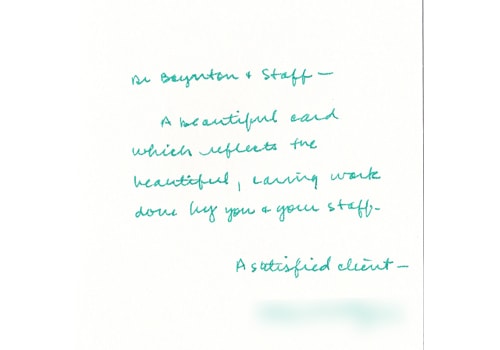 Dr Boynton & Staff —
A beautiful card
which reflects the
beautiful, caring work
done by you & your staff.
A satisfied client —